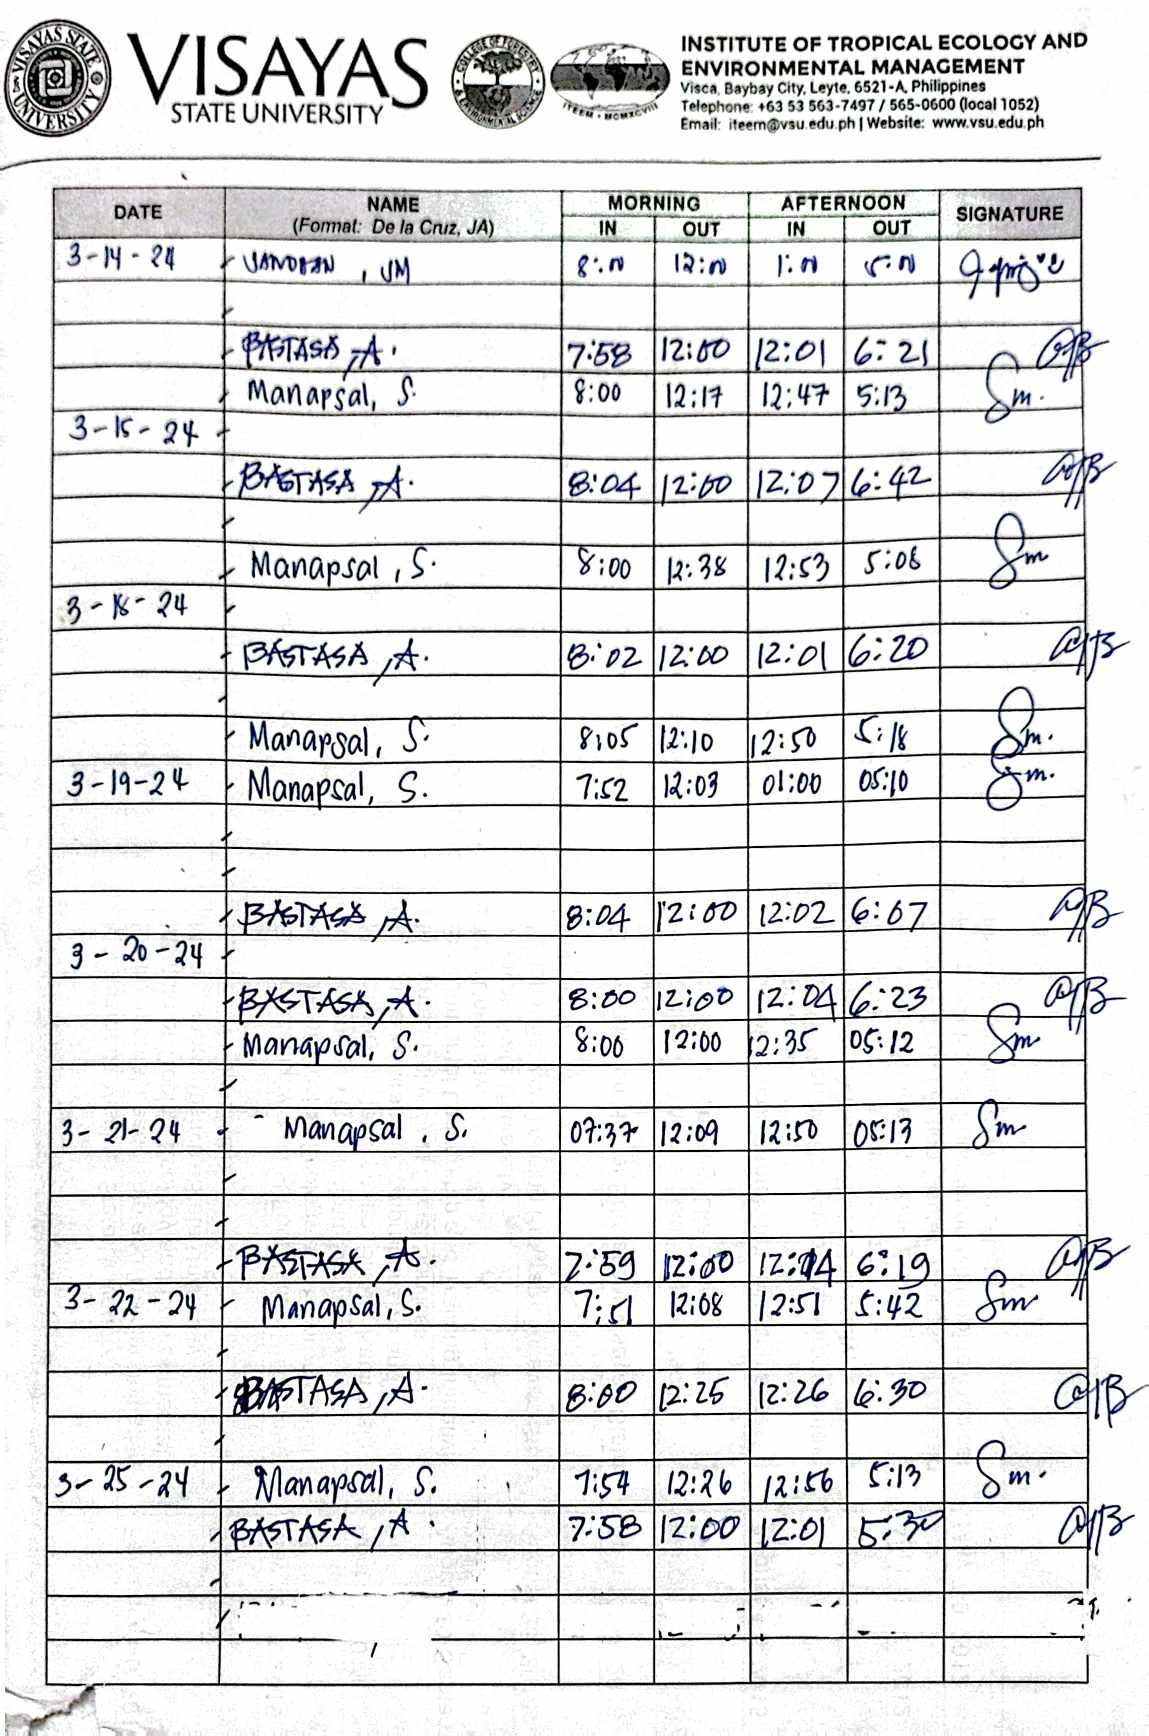 VISAYAS
STATE UNIVERSITY
VISAYAS STATE UNIVERSITY
COLLEGE OF FORESTRY & ENVIRONMENTAL SCIENCE
ITEEM - MCMXCVIII
INSTITUTE OF TROPICAL ECOLOGY AND
ENVIRONMENTAL MANAGEMENT
Visca, Baybay City, Leyte, 6521-A, Philippines
Telephone: +63 53 563-7497 / 565-0600 (local 1052)
Email: iteem@vsu.edu.ph | Website: www.vsu.edu.ph
DATE NAME MORNING AFTERNOON SIGNATURE
(Format: De la Cruz, JA) IN OUT IN OUT
3-14-24 , JM 8:00 12:00 1:00 5:00
BASTASA, A. 7:58 12:00 12:01 6:21 AJB
Manapsal, S. 8:00 12:17 12:47 5:13 Sm.
3-15-24
BASTASA, A. 8:04 12:00 12:07 6:42 AJB
Manapsal, S. 8:00 12:38 12:53 5:08 Sm
3-18-24
BASTASA, A. 8:02 12:00 12:01 6:20 AJB
Manapsal, S. 8:05 12:10 12:50 5:18 Sm.
3-19-24 Manapsal, S. 7:52 12:03 01:00 05:10 Sm.
BASTASA, A. 8:04 12:00 12:02 6:07 AJB
3-20-24
BASTASA, A. 8:00 12:00 12:04 6:23 AJB
Manapsal, S. 8:00 12:00 12:35 05:12 Sm
3-21-24 Manapsal, S. 07:37 12:09 12:50 05:13 Sm
BASTASA, A. 7:59 12:00 12:14 6:19 AJB
3-22-24 Manapsal, S. 7:51 12:08 12:51 5:42 Sm.
BASTASA, A. 8:00 12:25 12:26 6:30 AJB
3-25-24 Manapsal, S. 7:54 12:26 12:56 5:13 Sm.
BASTASA, A. 7:58 12:00 12:01 5:30 AJB